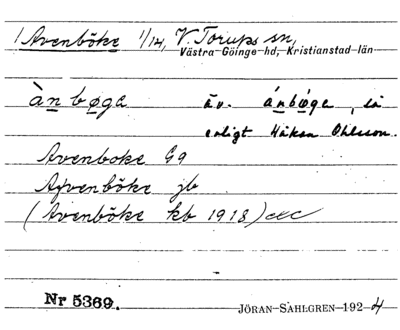 1 Avenböke 1/14, V. Torups sn,
Västra Göinge hd, Kristianstad län
ànbøga äv. ánbøga, så
enligt Håkan Ohlsson.
Avenboke G9
Afvenböke jb
(Avenböke kb 1918) etc
Nr 5369.
JÖRAN SAHLGREN 1924